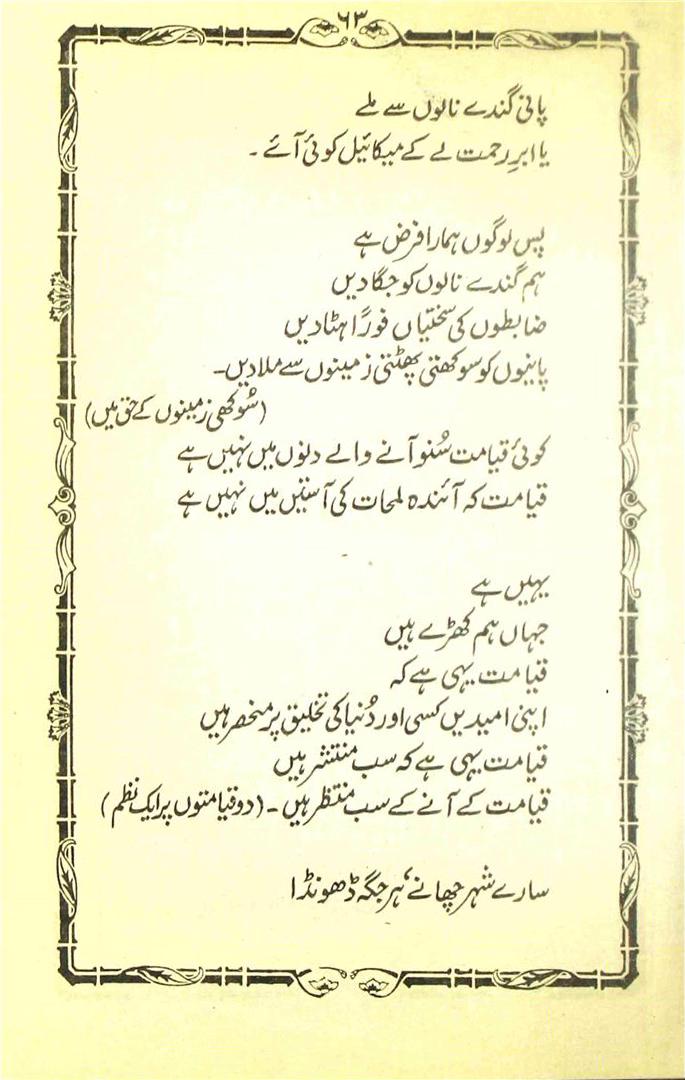 ۶۳
پانی گندے نالوں سے ملے
یا ابرِ رحمت لے کے میکائیل کوئی آئے ۔
پس لوگوں ہمارا فرض ہے
ہم گندے نالوں کو جگا دیں
ضابطوں کی سختیاں فوراً ہٹا دیں
پانیوں کو سوکھتی پھٹتی زمینوں سے ملا دیں۔
(سُوکھی زمینوں کے حق میں)
کوئی قیامت سُنو آنے والے دنوں میں نہیں ہے
قیامت کہ آئندہ لمحات کی آستیں میں نہیں ہے
یہیں ہے
جہاں ہم کھڑے ہیں
قیامت یہی ہے کہ
اپنی امیدیں کسی اور دُنیا کی تخلیق پر منحصر ہیں
قیامت یہی ہے کہ سب منتشر ہیں
قیامت کے آنے کے سب منتظر ہیں ۔ (دو قیامتوں پر ایک نظم)
سارے شہر چھانے، ہر جگہ ڈھونڈا